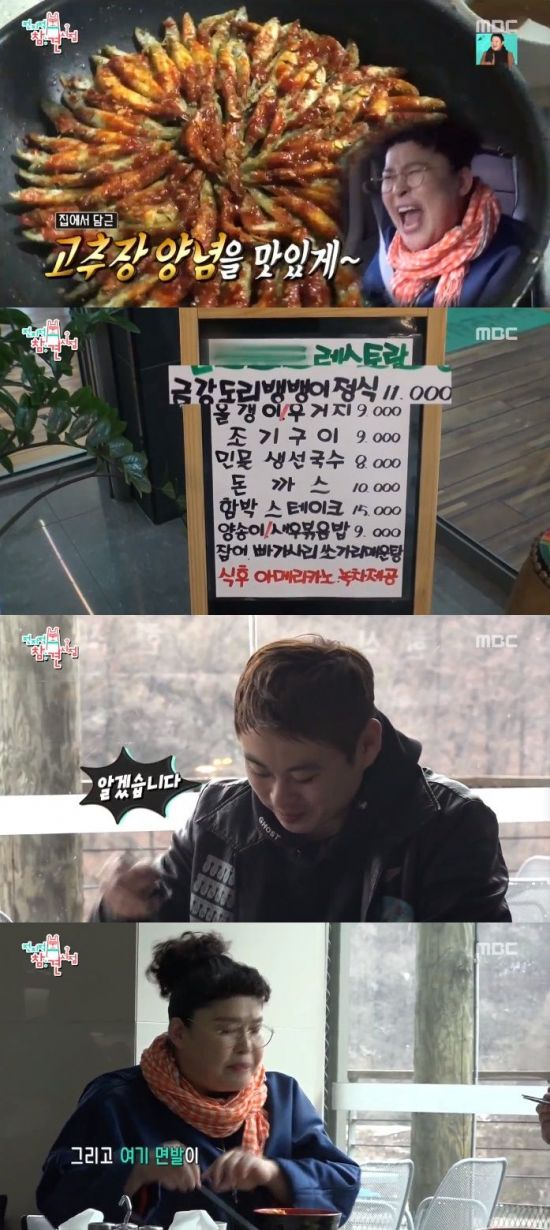 전지적 참견 시점
MBC
집에서 담근
고추장 양념을 맛있게~
전지적 참견 시점
MBC
레스토랑
금강도리뱅뱅이정식 11.000
올갱이!우거지 9.000
조기구이 9.000
민물 생선국수 8.000
돈까스 10.000
함박 스테이크 15.000
양송이!새우볶음밥 9.000
잡어. 빠가사리 쏘가리매운탕
식후 아메리카노.녹차제공
전지적 참견 시점
MBC
알겠습니다
GHOST
전지적 참견 시점
MBC
그리고 여기 면발이